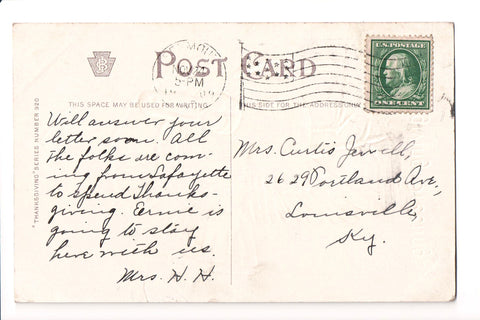 POST CARD
U.S. POSTAGE
ONE CENT
THIS SPACE MAY BE USED FOR WRITING
THIS SIDE FOR THE ADDRESS ONLY
"THANKSGIVING" SERIES NUMBER 990
Will answer your
letter soon. All
the folks are com-
ing from Lafayette
to spend Thanks-
giving. Ernie is
going to stay
here with us.
Mrs. H. H.
Mrs. Curtis Jewell,
2629 Portland Ave.,
Louisville,
Ky.